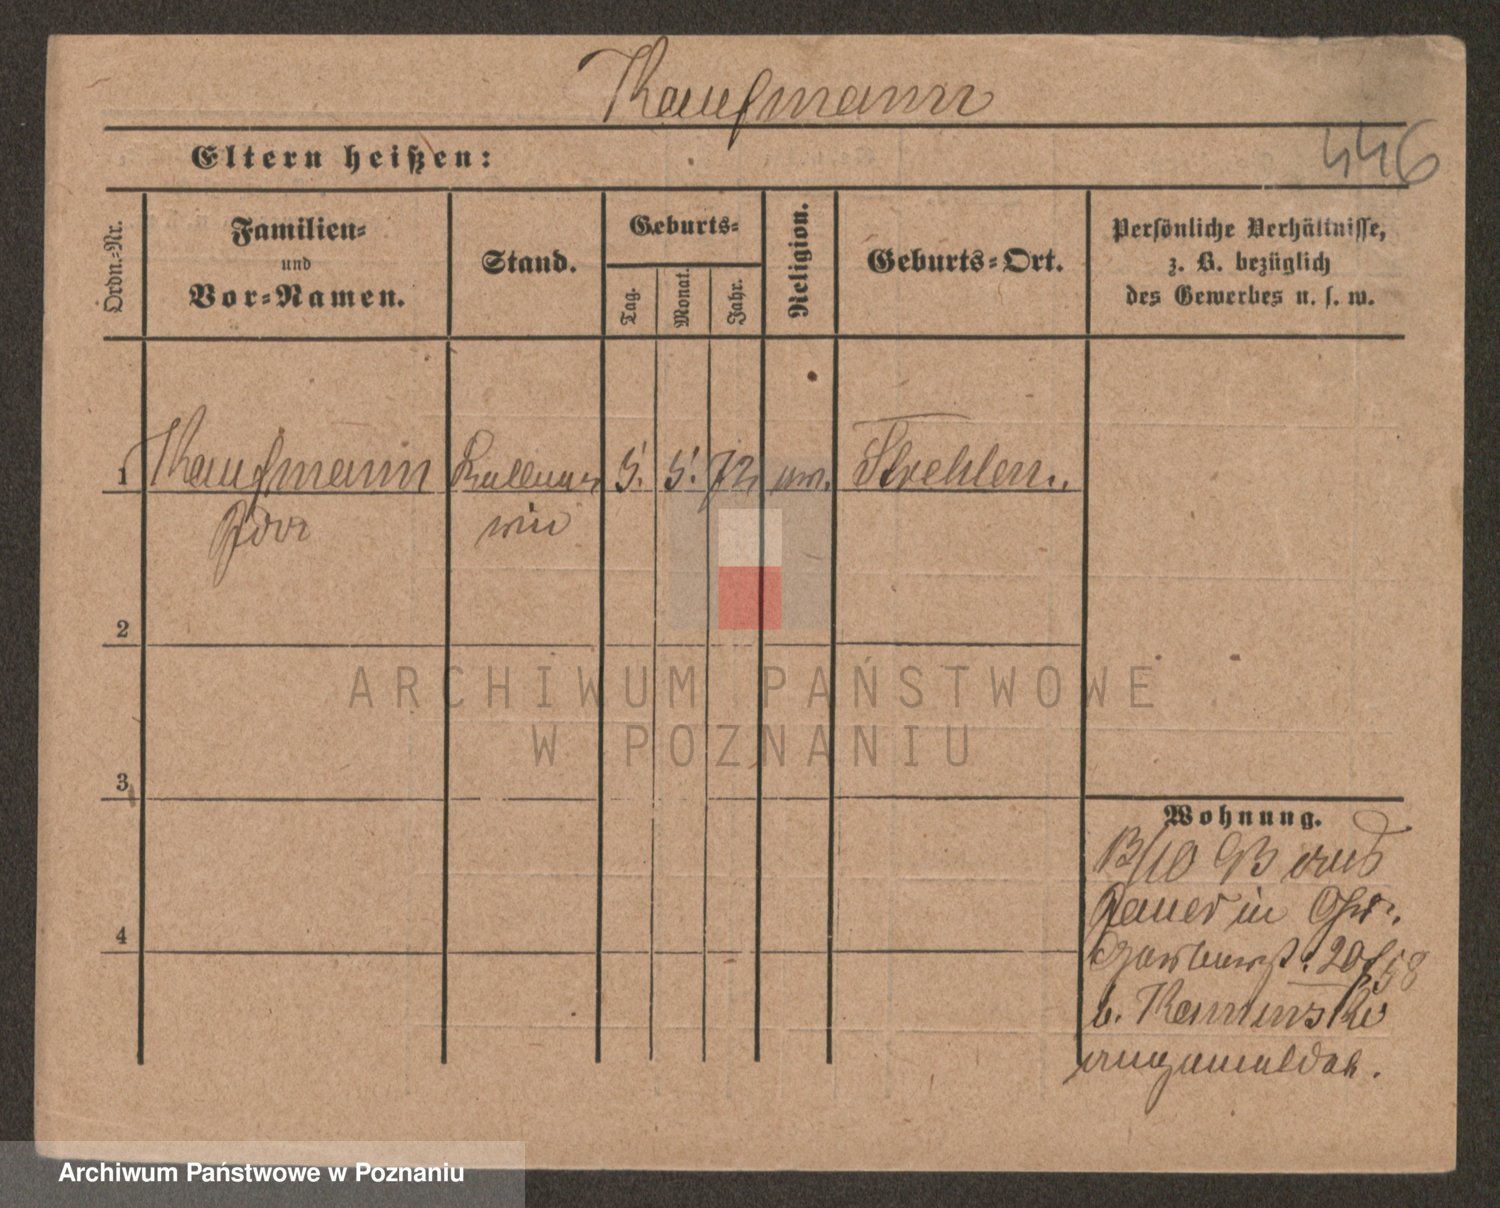 Kaufmann
446
Eltern heißen:
Ordn.-Nr.
Familien-
und
Vor-Namen.
Stand.
Geburts-
Tag.
Monat.
Jahr.
Religion.
Geburts-Ort.
Persönliche Verhältnisse,
z. B. bezüglich
des Gewerbes u. s. w.
1 Kaufmann Kellner 5. 5. 72 Strehlen.
win
2
3
4
Wohnung.
13/10 93 aus
Jauer in
20
b. Kaminski
angemeldet.
ARCHIWUM PAŃSTWOWE
W POZNANIU
Archiwum Państwowe w Poznaniu